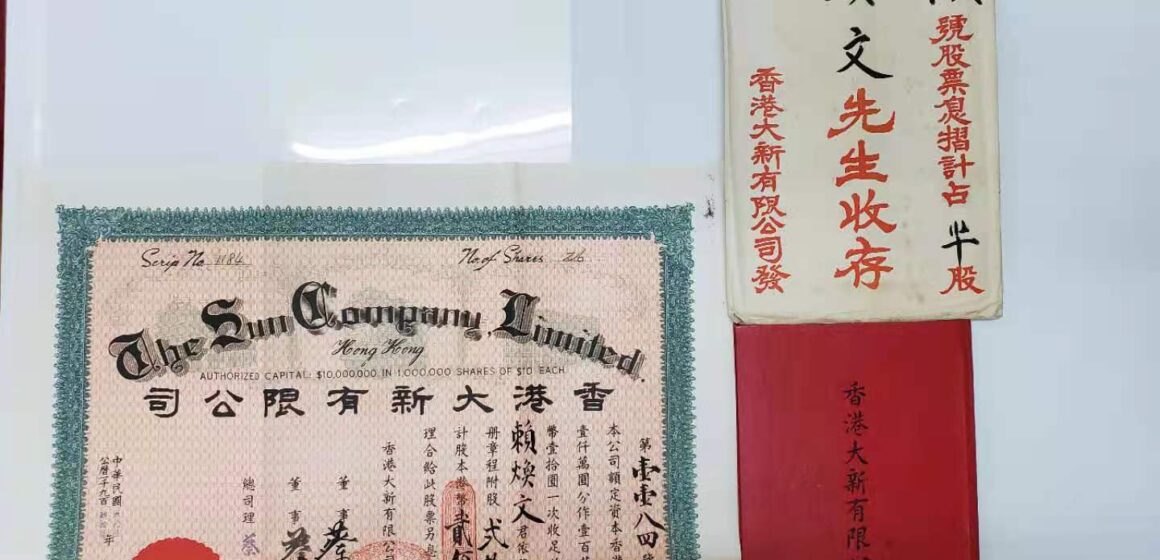 號股票息摺計占半股
文先生收存
香港大新有限公司發
Scrip No. 1184
No. of Shares 26
The Sun Company, Limited.
Hong Kong
AUTHORIZED CAPITAL: $10,000,000 IN 1,000,000 SHARES OF $10 EACH.
香港大新有限公司
第壹壹八四號
本公司額定資本香港
壹仟萬圓分作壹百
幣壹拾圓一次收足
賴煥文君依
册章程附股弍
計股本港幣貳佰
理合給此股票另息
香港大新有限公司
董事
董事
總司理
中華民國
公曆一千九百
香港大新有限